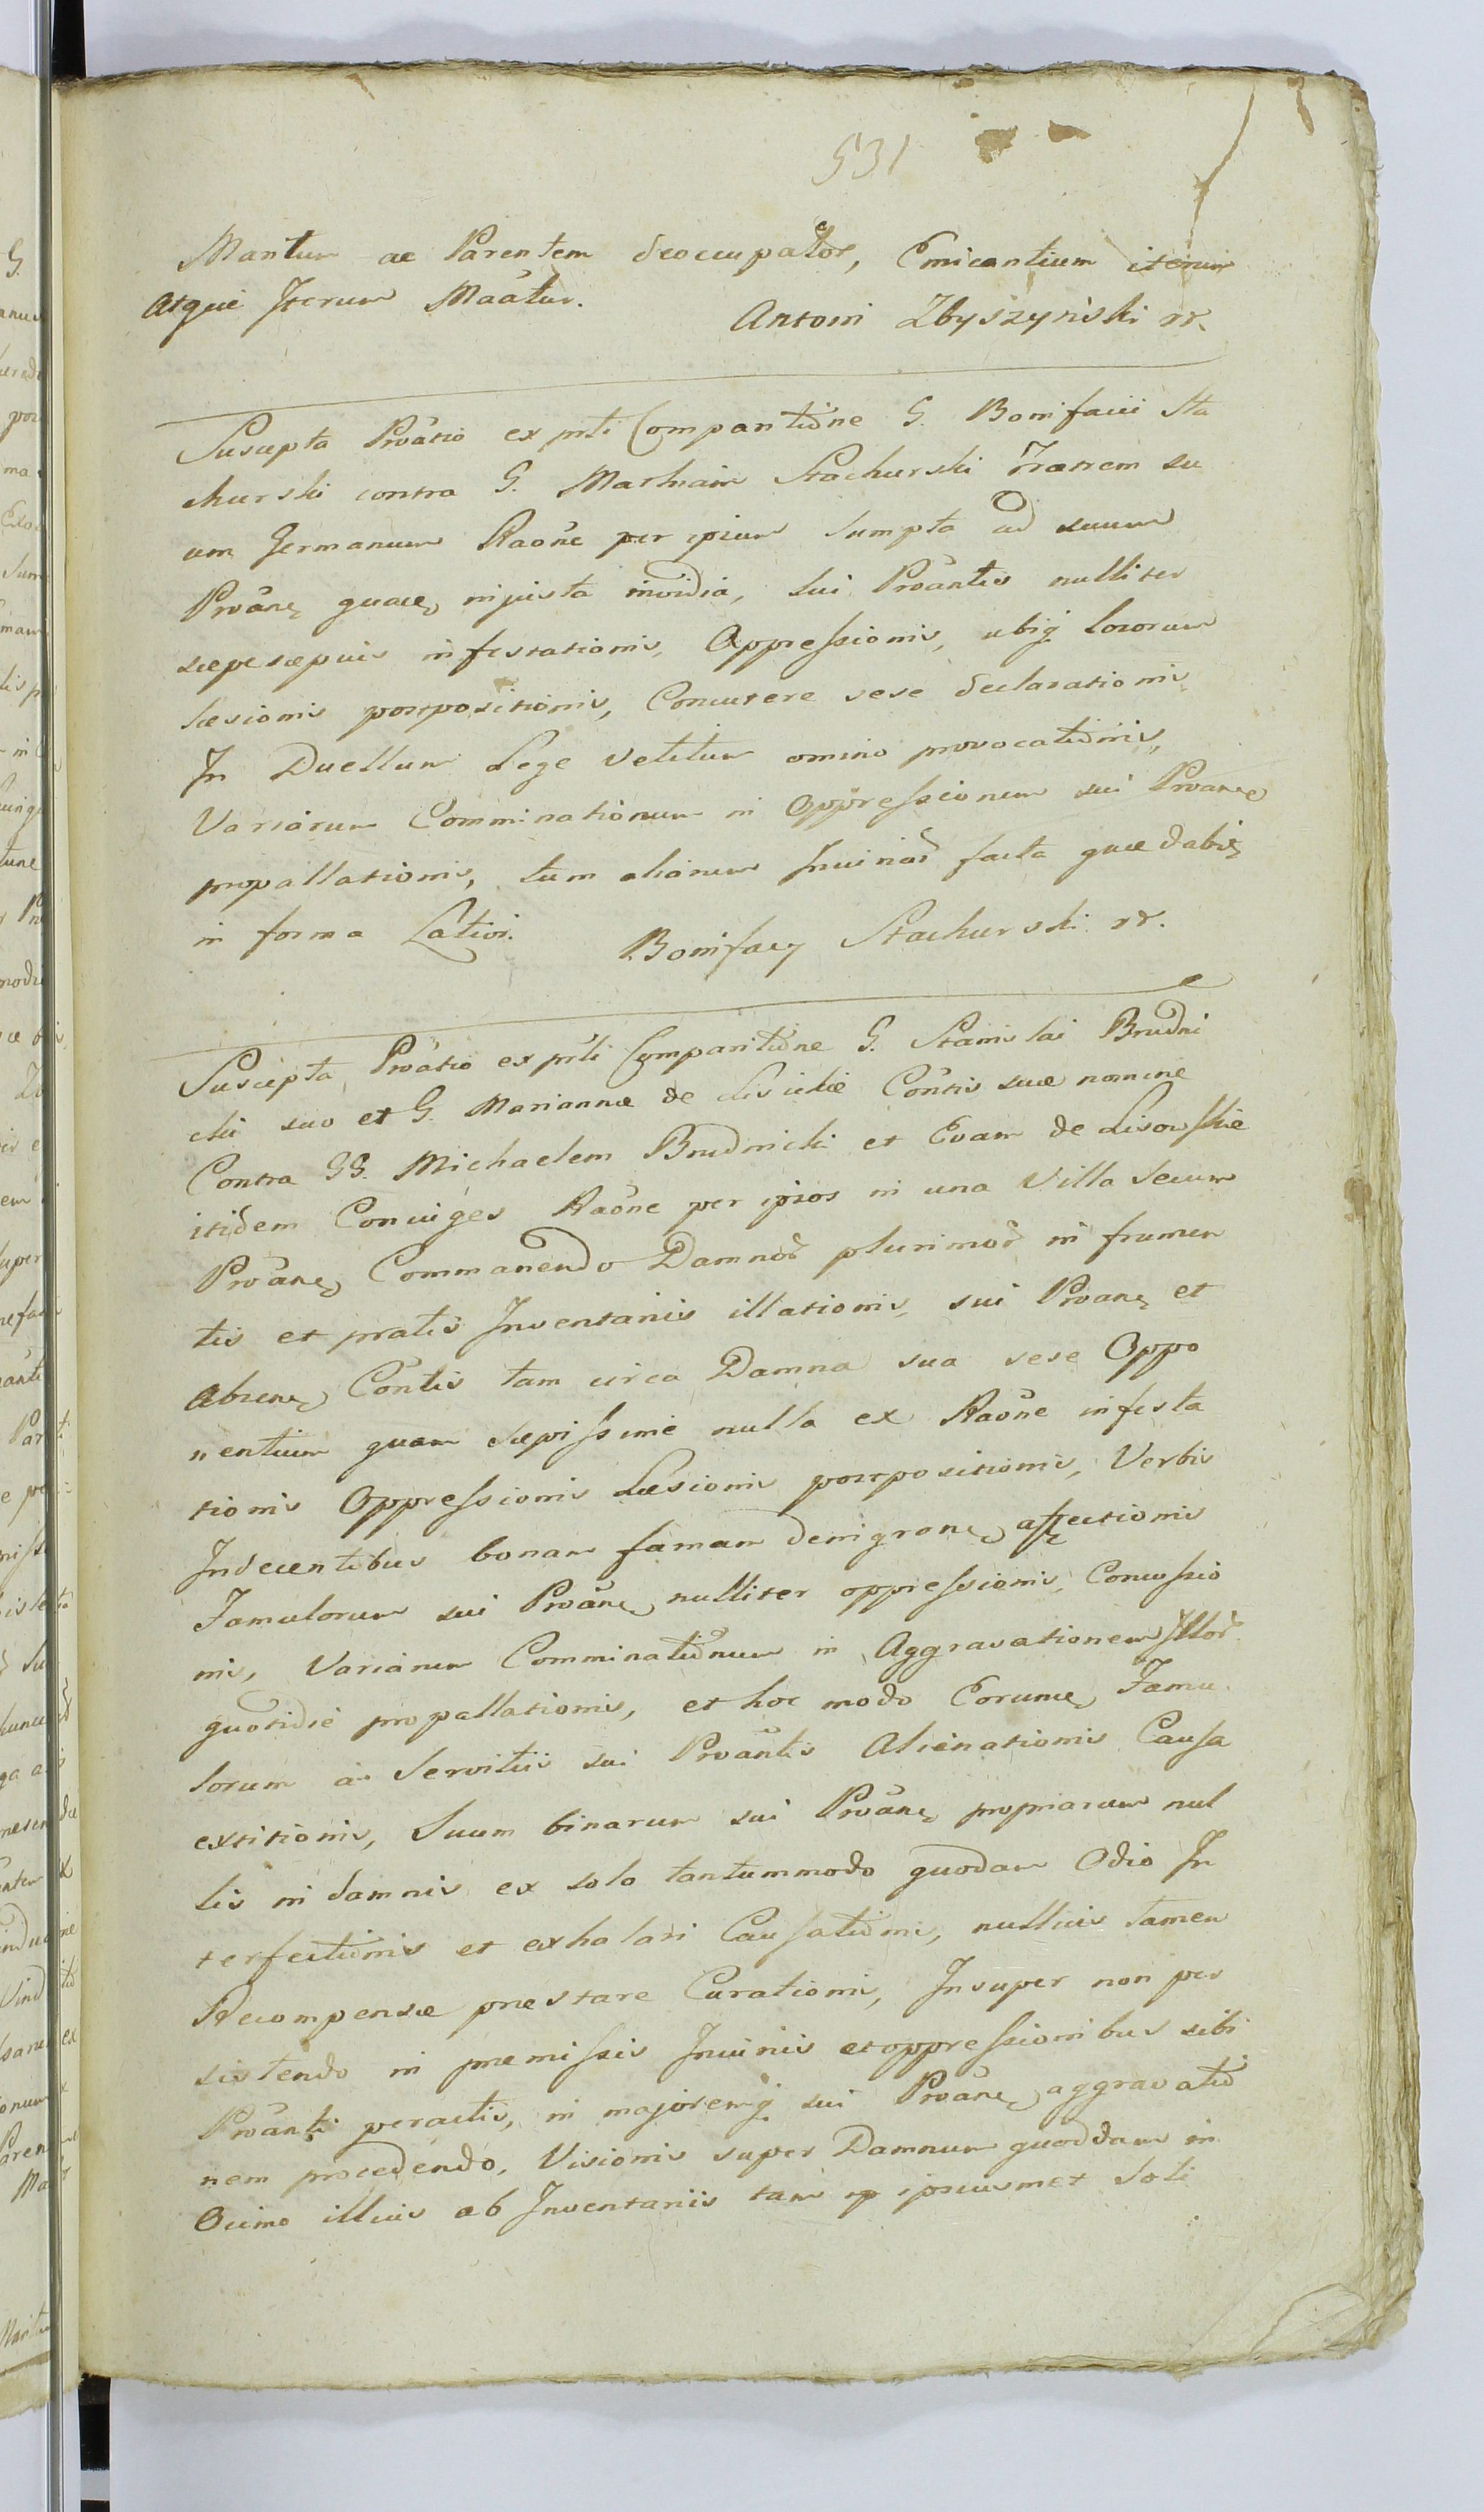 531
Maritum ac Parentem deoccupator, Emicantium iterum
atque Iterum Maatur.
Antoni Zbyszyński rr.
Suscepta Proatio ex prti Comparitione G. Bonifacii Sta
churski contra G. Mathiam Stachurski Fratrem su
um Germanum Raone per ipsum Sumpta ad suum
Proane quaeq injusta invidia, sui Proantis nulliter
saepesaepius infestationis, Oppressionis, ubiq Locorum
Laesionis postpositionis, Concutere sese declarationis
In Duellum Lege Vetitum omino provocationis,
Variarum Comminationum in Oppressionem sui Proane
propallationis, tum aliarum Injuriar facta quae dabit
in forma Latiori.
Bonifacy Stachurski rr.
Suscepta Proatio ex prti Comparitione G. Stanislai Brudni
cki suo et G. Mariannae de Lisickie Contis suae nomine
Contra GG. Michaelem Brudnicki et Evam de Lisowskie
itidem Conjuges Raone per ipsos in una Villa Secum
Proane Commanendo Damnor plurimor in frumen
tis et pratis Inventariis illationis, sui Proane et
absene Contis tam circa Damna sua sese Oppo
nentium quam Saepissime nulla ex Raone infesta
tionis Oppressionis Laesionis postpositionis, Verbis
Indecentibus bonam famam denigrane affectionis
Famulorum sui Proane nulliter oppressionis, Concussio
nis, Variarum Comminationum in Aggravationem Illor
quotidie propallationis, et hoc modo Eorume Famu
lorum a Servitiis sui Proantis Alienationis Causa
extitionis, Suum binarum sui Proane propriarum nul
lis in damnis ex solo tantummodo quodam Odio In
terfectionis et exhalari Causationis, nullius tamen
Recompensae praestare Curationis, Insuper non per
sistendo in praemissis Injuriis et oppressionibus sibi
Proanti peractis, in majoremq sui Proane aggravatio
nem procedendo, Visionis super Damnum quoddam in
Ocimo illius ab Inventariis tam ipsiusmet Soli